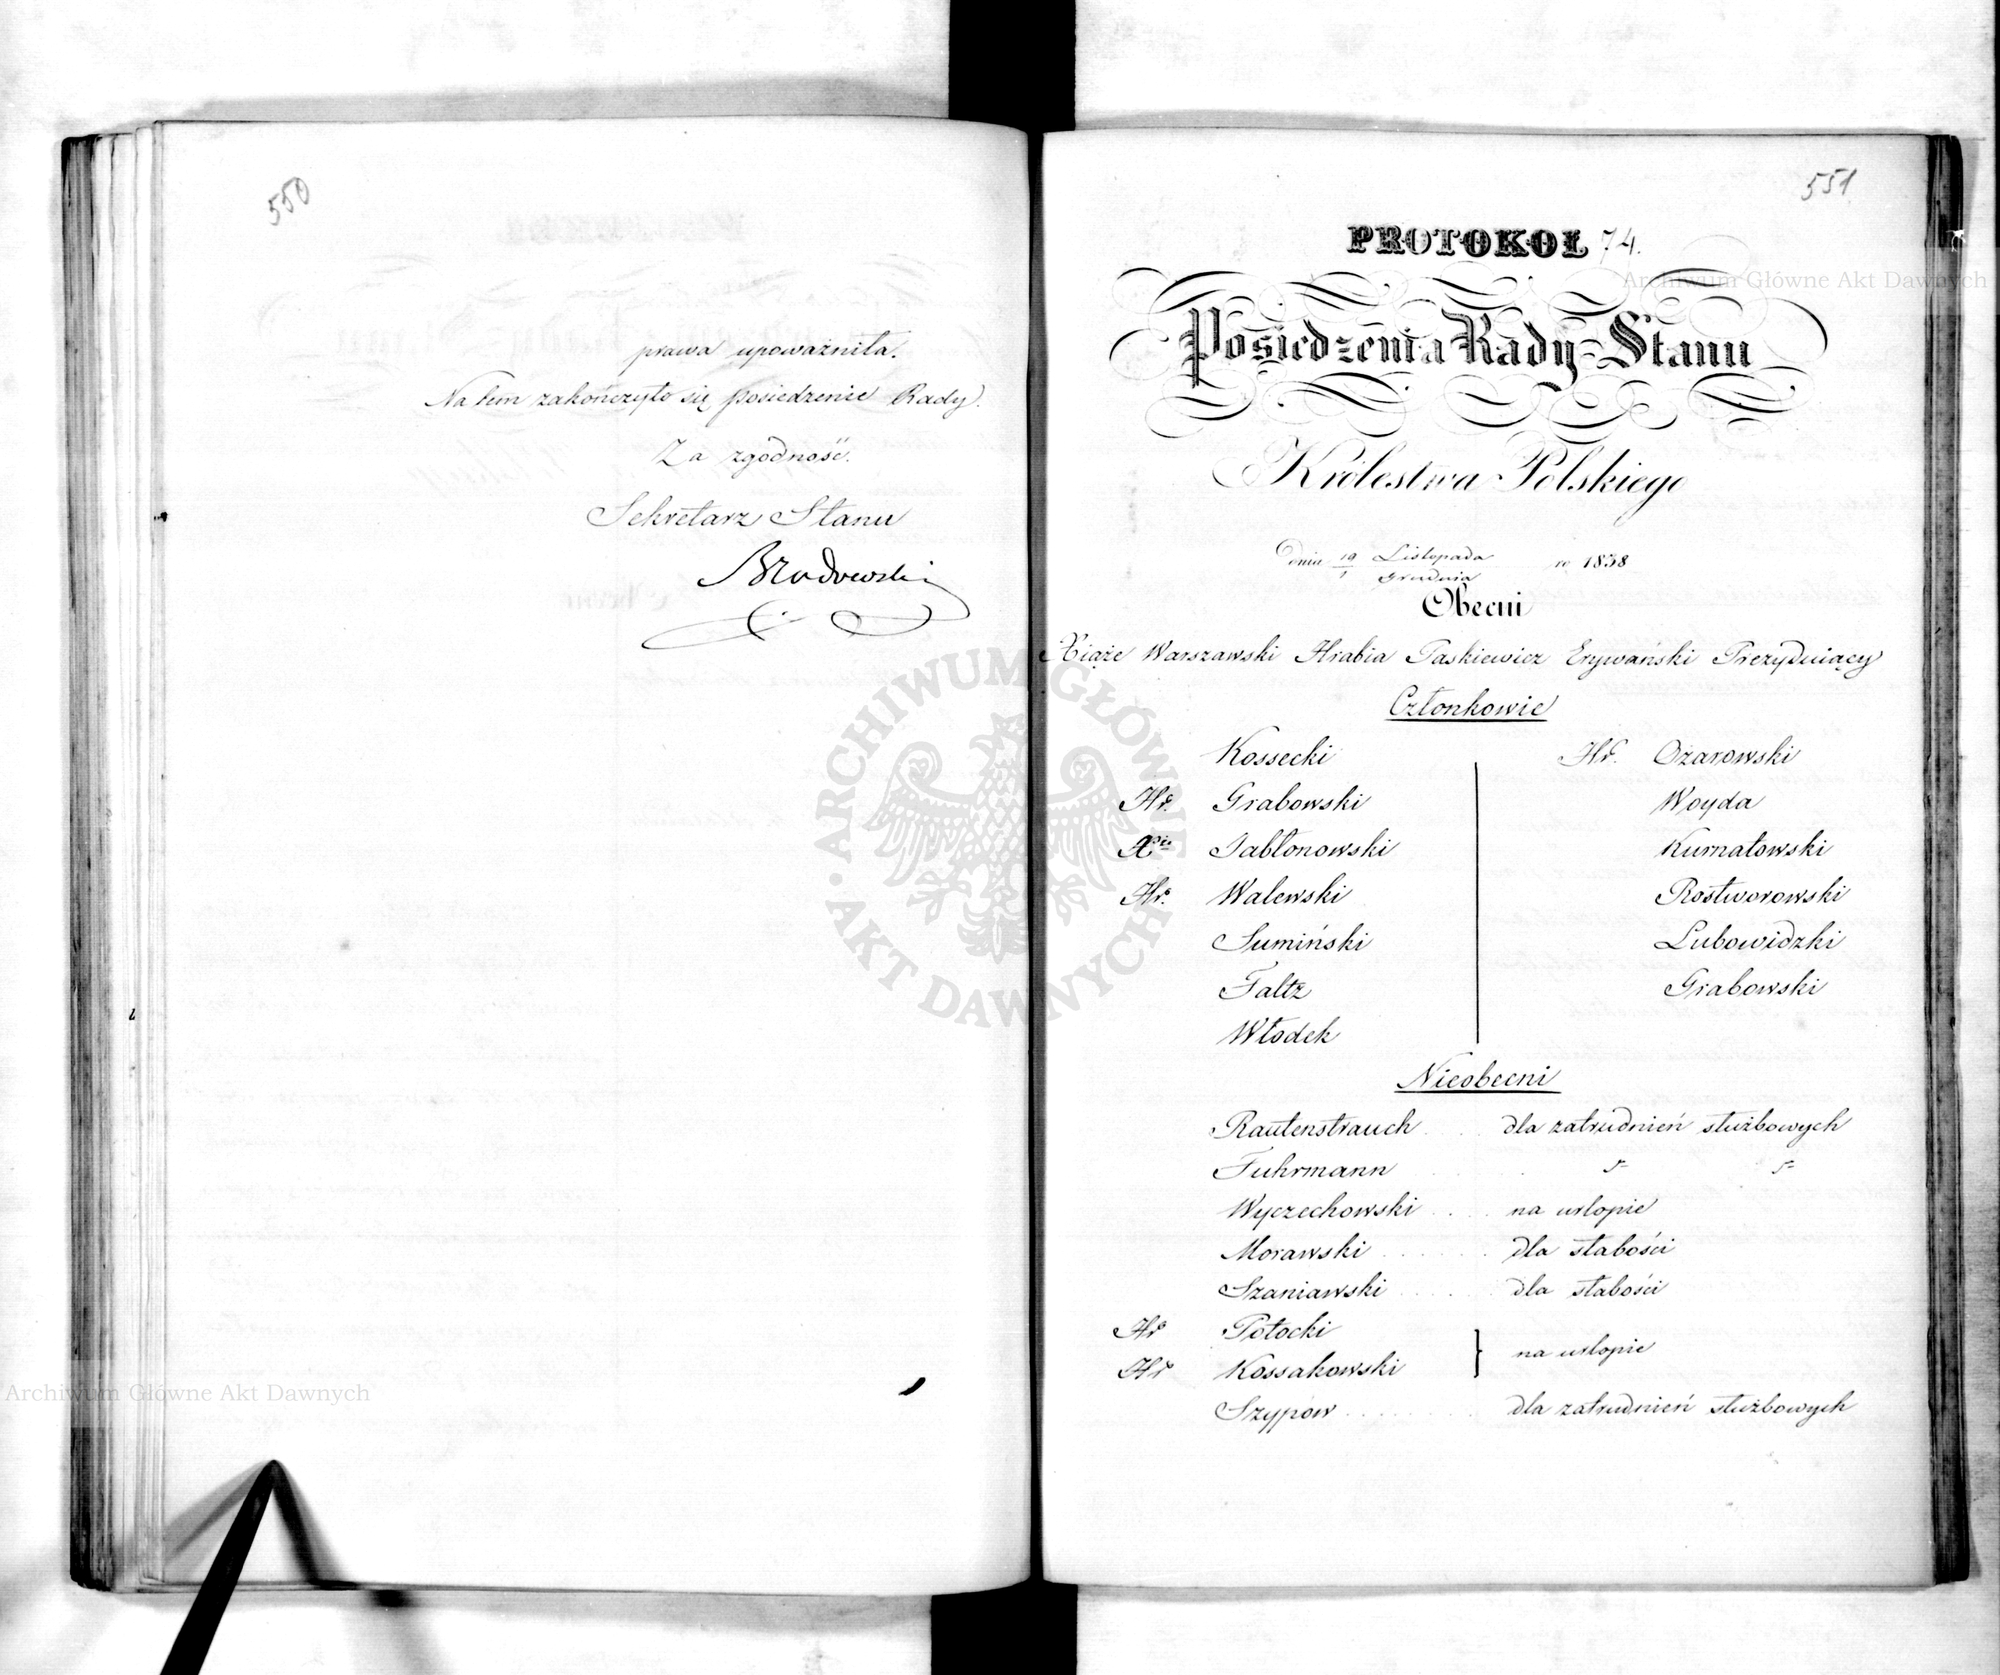 550
prawa upoważniła.
Na tem zakończyło się posiedzenie Rady.
Za zgodność.
Sekretarz Stanu
Brodowski
551
PROTOKOŁ 74.
Posiedzenia Rady Stanu
Królestwa Polskiego
Dnia 19/1 Listopada/Grudnia r. 1838
Obecni
Xiąże Warszawski Hrabia Paskiewicz Erywański Prezydujący
Członkowie
Kossecki
Hr. Grabowski
Xże Jabłonowski
Hr. Walewski
Sumiński
Faltz
Włodek
Hr. Ożarowski
Woyda
Kurnatowski
Rostworowski
Lubowidzki
Grabowski
Nieobecni
Rautenstrauch . . . . dla zatrudnień służbowych
Fuhrmann
Wyczechowski . . . . na urlopie
Morawski . . . . . . dla słabości
Szaniawski . . . . . dla słabości
Hr Potocki
Hr Kossakowski } na urlopie
Szypow . . . . . . . dla zatrudnień służbowych
Archiwum Główne Akt Dawnych
ARCHIWUM GŁÓWNE AKT DAWNYCH
Archiwum Główne Akt Dawnych